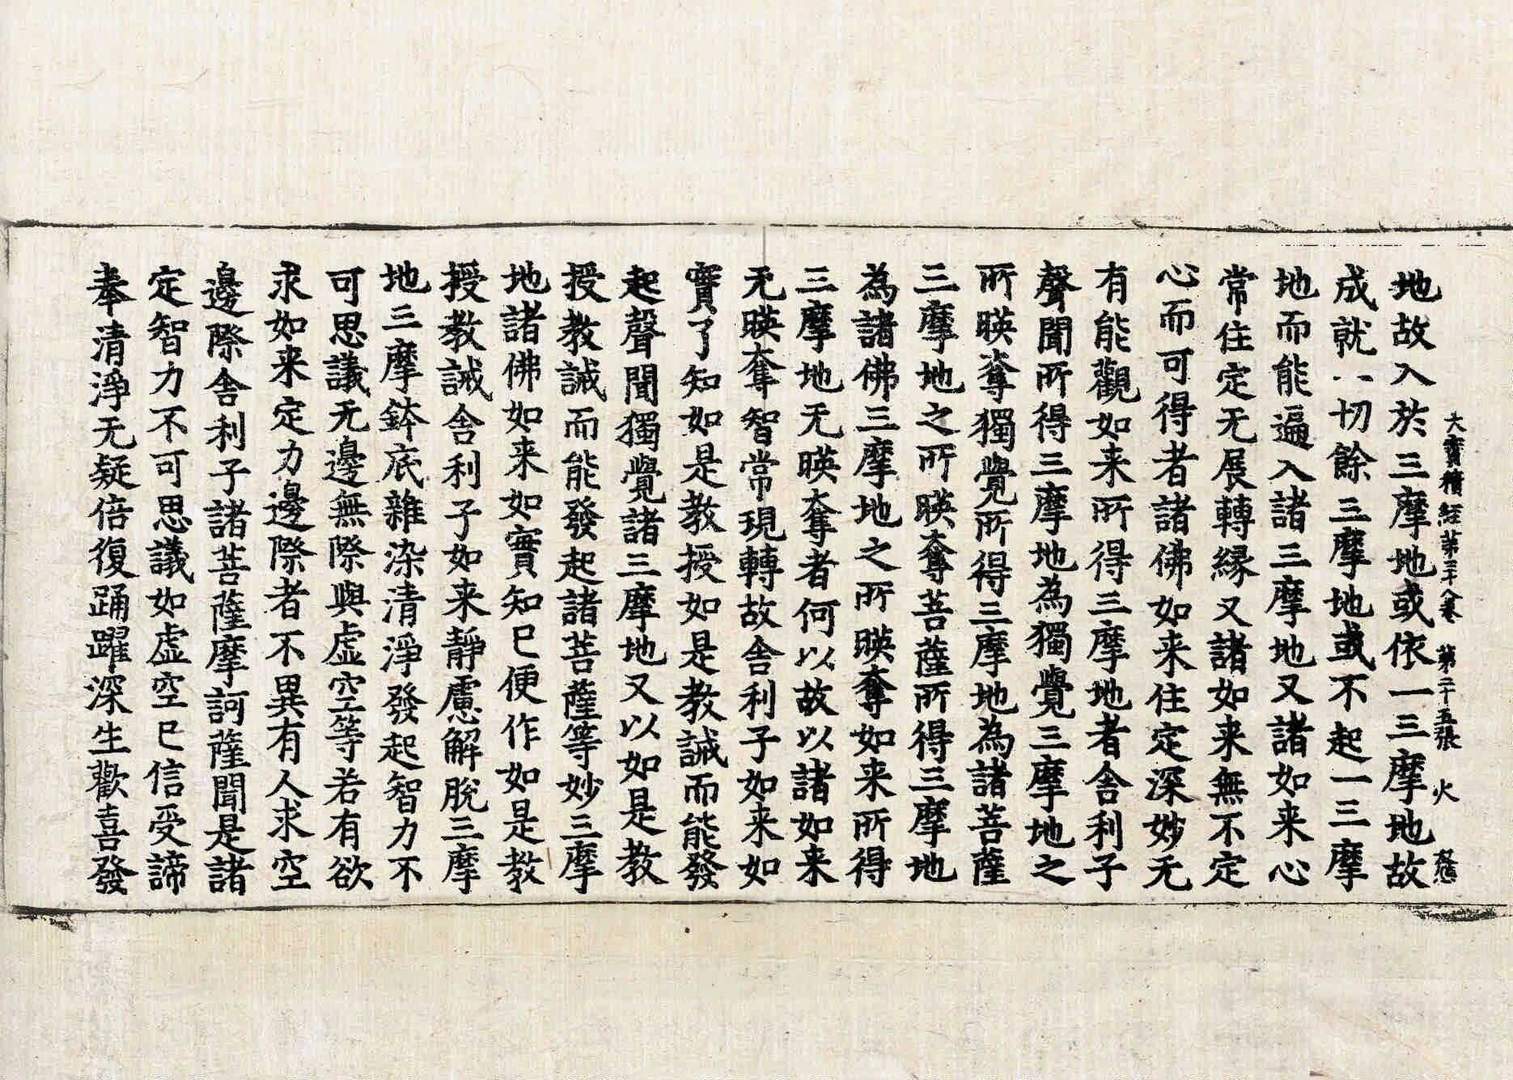 大寶積經第三十八卷　第二十五張　火
地故入於三摩地或依一三摩地故
成就一切餘三摩地或不起一三摩
地而能遍入諸三摩地又諸如来心
常住定无展轉緣又諸如来無不定
心而可得者諸佛如来住定深妙无
有能觀如来所得三摩地者舍利子
聲聞所得三摩地為獨覺三摩地之
所暎奪獨覺所得三摩地為諸菩薩
三摩地之所暎奪菩薩所得三摩地
為諸佛三摩地之所暎奪如来所得
三摩地无暎奪者何以故以諸如来
无暎奪智常現轉故舍利子如来如
實了知如是教授如是教誡而能發
起聲聞獨覺諸三摩地又以如是教
授教誡而能發起諸菩薩等妙三摩
地諸佛如来如實知已便作如是教
授教誡舍利子如来靜慮解脫三摩
地三摩鉢底雜染清淨發起智力不
可思議无邊無際與虛空等若有欲
求如来定力邊際者不異有人求空
邊際舍利子諸菩薩摩訶薩聞是諸
定智力不可思議如虛空已信受諦
奉清淨无疑倍復踊躍深生歡喜發